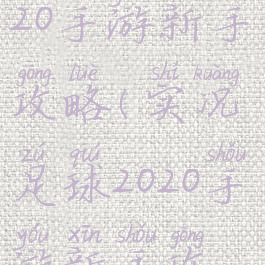 20手游新手
gōng lüè shí kuàng
攻略(实况
zú qiú shǒu
足球2020手
yóu xīn shǒu gōng
游新手攻